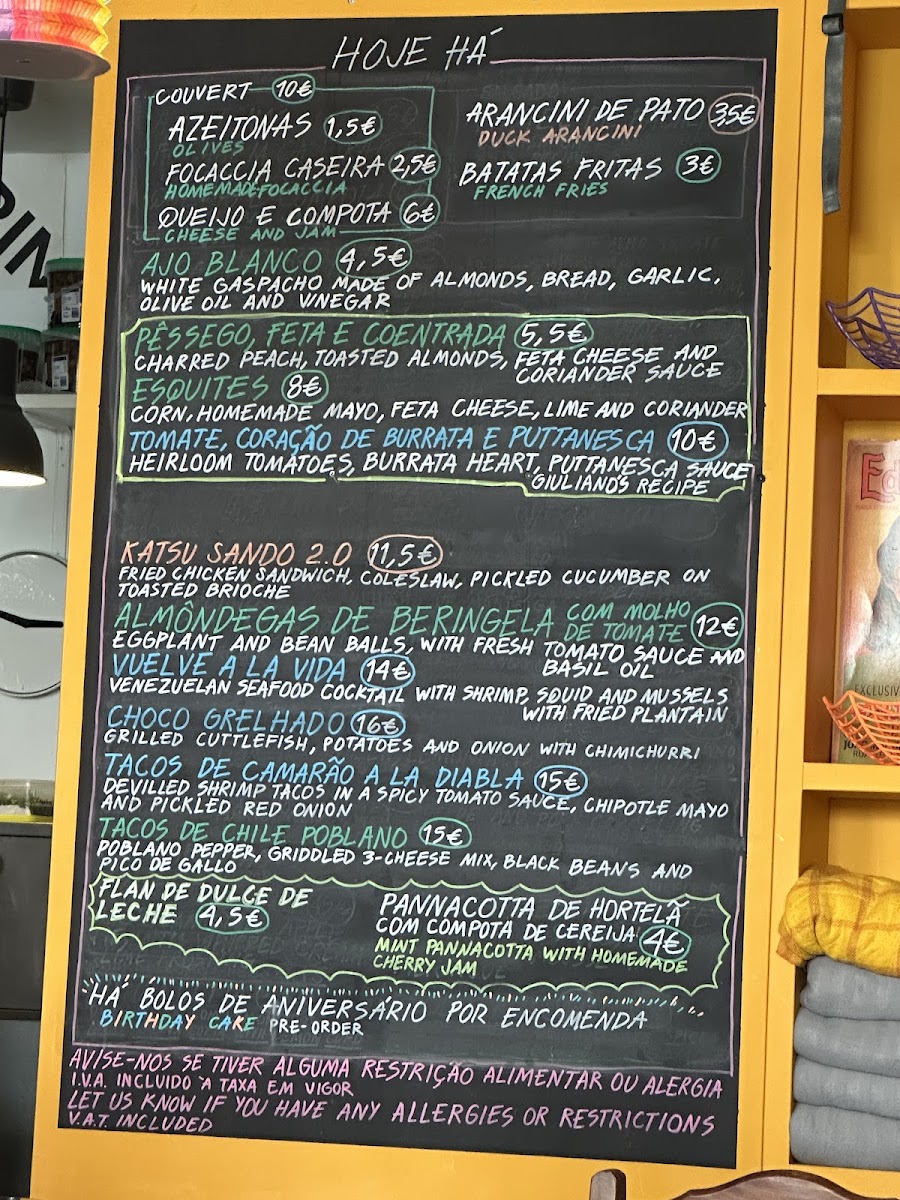 HOJE HÁ
COUVERT 10€
AZEITONAS 1,5€
OLIVES
FOCACCIA CASEIRA 2,5€
HOMEMADE FOCACCIA
QUEIJO E COMPOTA 6€
CHEESE AND JAM
ARANCINI DE PATO 3,5€
DUCK ARANCINI
BATATAS FRITAS 3€
FRENCH FRIES
AJO BLANCO 4,5€
WHITE GASPACHO MADE OF ALMONDS, BREAD, GARLIC,
OLIVE OIL AND VINEGAR
PÊSSEGO, FETA E COENTRADA 5,5€
CHARRED PEACH, TOASTED ALMONDS, FETA CHEESE AND
CORIANDER SAUCE
ESQUITES 8€
CORN, HOMEMADE MAYO, FETA CHEESE, LIME AND CORIANDER
TOMATE, CORAÇÃO DE BURRATA E PUTTANESCA 10€
HEIRLOOM TOMATOES, BURRATA HEART, PUTTANESCA SAUCE
GIULIANO'S RECIPE
KATSU SANDO 2.0 11,5€
FRIED CHICKEN SANDWICH, COLESLAW, PICKLED CUCUMBER ON
TOASTED BRIOCHE
ALMÔNDEGAS DE BERINGELA COM MOLHO
DE TOMATE 12€
EGGPLANT AND BEAN BALLS, WITH FRESH TOMATO SAUCE AND
BASIL OIL
VUELVE A LA VIDA 14€
VENEZUELAN SEAFOOD COCKTAIL WITH SHRIMP, SQUID AND MUSSELS
WITH FRIED PLANTAIN
CHOCO GRELHADO 16€
GRILLED CUTTLEFISH, POTATOES AND ONION WITH CHIMICHURRI
TACOS DE CAMARÃO A LA DIABLA 15€
DEVILLED SHRIMP TACOS IN A SPICY TOMATO SAUCE, CHIPOTLE MAYO
AND PICKLED RED ONION
TACOS DE CHILE POBLANO 15€
POBLANO PEPPER, GRIDDLED 3-CHEESE MIX, BLACK BEANS AND
PICO DE GALLO
FLAN DE DULCE DE
LECHE 4,5€
PANNACOTTA DE HORTELÃ
COM COMPOTA DE CEREIJA 4€
MINT PANNACOTTA WITH HOMEMADE
CHERRY JAM
HÁ BOLOS DE ANIVERSÁRIO POR ENCOMENDA
BIRTHDAY CAKE PRE-ORDER
AVISE-NOS SE TIVER ALGUMA RESTRIÇÃO ALIMENTAR OU ALERGIA
I.V.A. INCLUIDO À TAXA EM VIGOR
LET US KNOW IF YOU HAVE ANY ALLERGIES OR RESTRICTIONS
V.A.T. INCLUDED